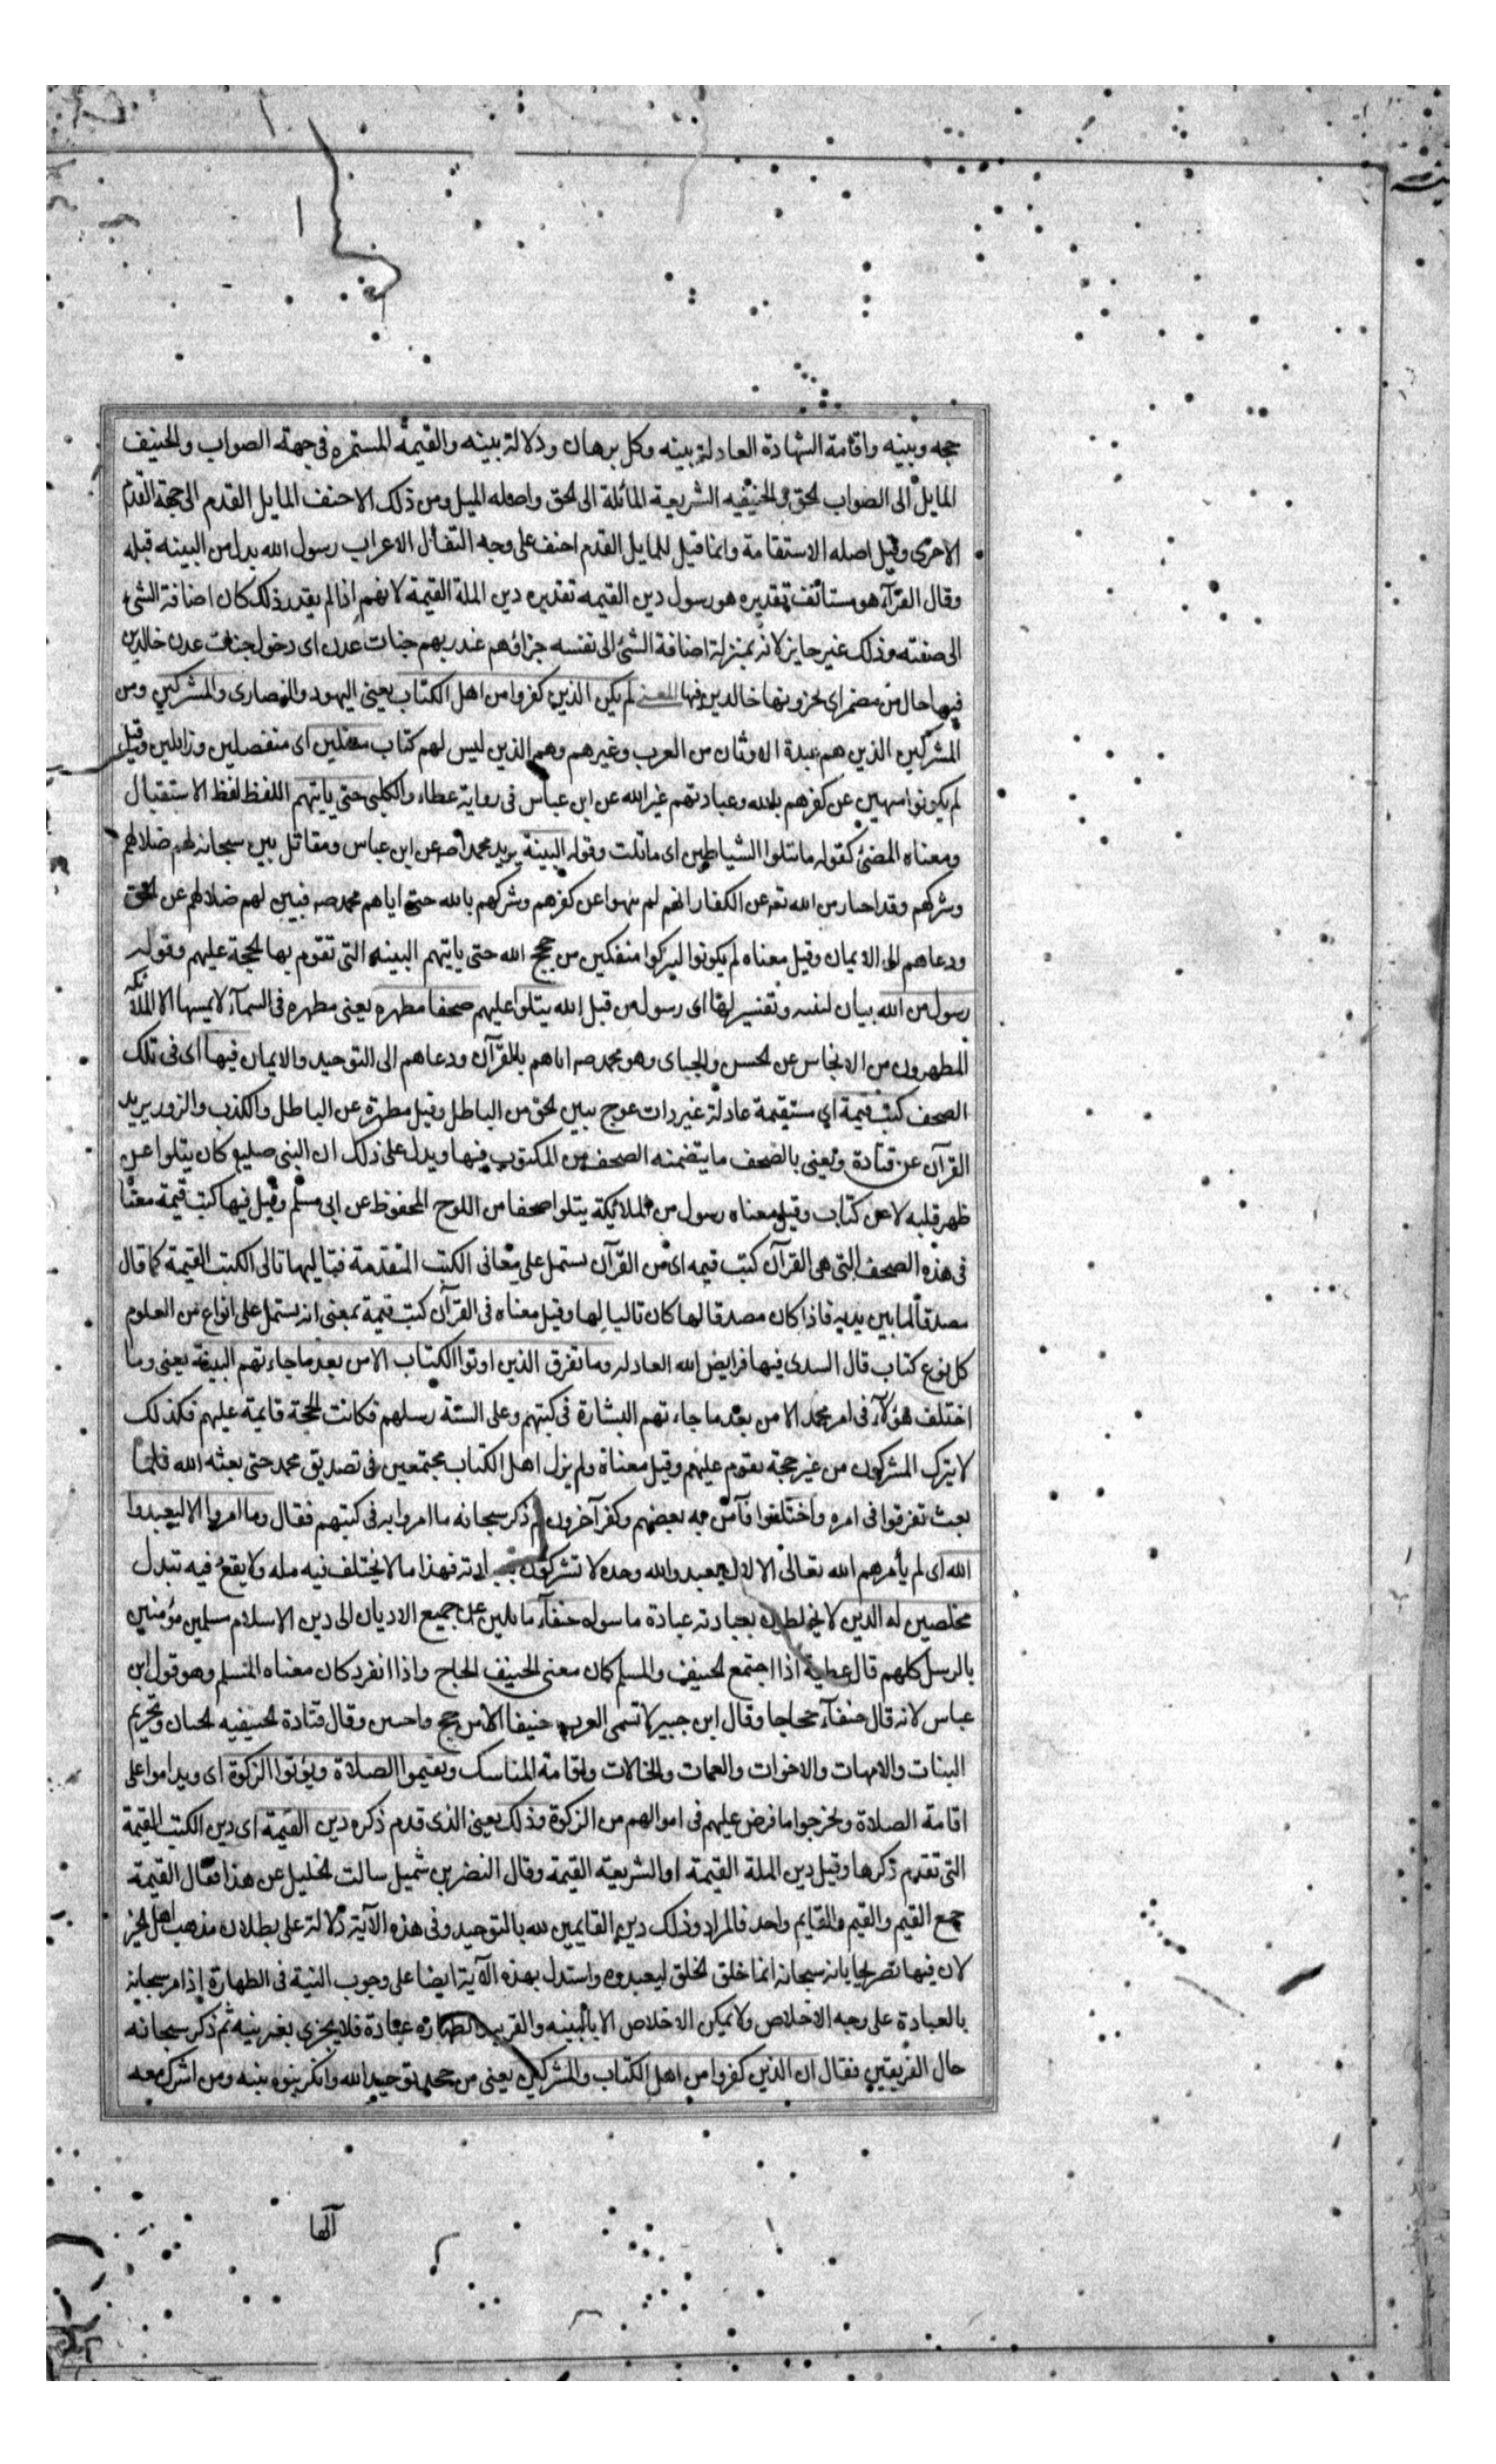 حجه وبينه واقامة الشهادة العادلة بينه وكل برهان ودلالة بينه والقيمة المستمره فى جهة الصواب والحنيف
المايل الى الصواب الحق والحنيفيه الشريعية المائلة الى الحق واصله الميل ومن ذلك الاحنف المايل القدم الى جهة القدم
الاخرى وقيل اصله الاستقامة وانما قيل للمايل القدم احنف على وجه التفأل الاعراب رسول الله بدل من البينه قبله
وقال الفرآء هو مستأنف تقديره هو رسول دين القيمه تقديره دين الملة القيمة لانهم اذا لم يقدر ذلك كان اضافة الشئ
الى صفته وذلك غير جايز لانه بمنزلة اضافة الشئ الى نفسه جزاؤهم عند ربهم جنات عدن اى دخول جنات عدن خالدين
فيها حال من مضمر اى يجزونها خالدين فيها المعنى لم يكن الذين كفروا من اهل الكتاب يعنى اليهود والنصارى والمشركين ومن
المشركين الذين هم عبدة الاوثان من العرب وغيرهم وهم الذين ليس لهم كتاب منفكين اى منفصلين وزايلين وقيل
لم يكونوا منتهين عن كفرهم بالله وعبادتهم غير الله عن ابن عباس فى رواية عطاء والكلبى حتى ياتيهم اللفظ لفظ الاستقبال
ومعناه المضى كقوله ماتتلوا الشياطين اى ماتلت وقوله البينة يريد محمدا صه عن ابن عباس ومقاتل بين سبحانه لهم ضلالهم
وشركهم وقد اخبار من الله تعه عن الكفار انهم لم ينهوا عن كفرهم وشركهم بالله حتى اياهم محمد صه فبين لهم ضلالهم عن الحق
ودعاهم الى الايمان وقيل معناه لم يكونوا ليتركوا منفكين من حجج الله حتى ياتيهم البينه التى تقوم بها الحجة عليهم وقوله
رسول من الله بيان لنفسه وتفسير لها اى رسول من قبل الله يتلوا عليهم صحفا مطهره يعنى مطهره فى السمآء لايمسها الا الملآئكه
المطهرون من الانجاس عن الحسن والجباى وهو محمد صه اتاهم بالقرآن ودعاهم الى التوحيد والايمان فيها اى فى تلك
الصحف كتب قيمة اى مستقيمة عادلة غير ذات عوج يبين الحق من الباطل وقيل مطهرة عن الباطل والكذب والزور يريد
القرآن عن قتادة ويعنى بالصحف ما يتضمنه الصحف من المكتوب فيها ويدل على ذلك ان النبى صليع كان يتلوا عن
ظهر قلبه لا عن كتاب وقيل معناه رسول من الملائيكة يتلوا صحفا من اللوح المحفوظ عن ابى مسلم وقيل فيها كتب قيمة معناه
فى هذه الصحف التى هى القرآن كتب قيمه اى من القرآن يشتمل على معانى الكتب المتقدمة فتاليها تالى الكتب القيمة كما قال
مصدقا لما بين يديه فاذا كان مصدقا لها كان تاليا لها وقيل معناه فى القرآن كتب قيمة بمعنى انه يشتمل على انواع من العلوم
كل نوع كتاب قال السدى فيها فرايض الله العادله وما تفرق الذين اوتوا الكتاب الا من بعد ما جاءتهم البينة يعنى وما
اختلف هؤلآء فى امر محمد الا من بعد ما جاءتهم البشارة فى كتبهم وعلى السنة رسلهم فكانت الحجة قايمة عليهم فكذلك
لا يترك المشركون من غير حجة تقوم عليهم وقيل معناه ولم يزل اهل الكتاب مجتمعين فى تصديق محمد حتى بعثه الله فلما
بعث تفرقوا فى امره واختلفوا فآمن به بعضهم وكفر آخرون ثم ذكر سبحانه ما امروا به فى كتبهم فقال وما امروا الا ليعبدوا
الله اى لم يأمرهم الله تعالى الا لان يعبدوا الله وحده لا تشركون فهذا ما لا يختلف فيه مله ولا يقع فيه تبدل
مخلصين له الدين لا يخلطون بعبادته عبادة ما سوله حنفآء مائلين عن جميع الاديان الى دين الاسلام مسلمين مؤمنين
بالرسل كلهم قال عطية اذا اجتمع الحنيف والمسلم كان معنى الحنيف الحاج واذا انفرد كان معناه المسلم وهو قول ابن
عباس لانه قال حنفآء حجاجا وقال ابن جبير لا تسمى العرب حنيفا الا من حج واحسن وقال قتادة الحنيفيه الختان وتحريم
البنات والامهات والاخوات والعمات والخالات واقامة المناسك ويقيموا الصلاة ويؤتوا الزكوة اى ويداموا على
اقامة الصلاة ويخرجوا ما فرض عليهم فى اموالهم من الزكوة وذلك يعنى الذى قدم ذكره دين القيمة اى دين الكتب القيمة
التى تقدم ذكرها وقيل دين الملة القيمة او الشريعة القيمة وقال النضر بن شميل سالت الخليل عن هذا فقال القيمة
جمع القيم والقيم والقايم واحد فالمراد وذلك دين القايمين لله بالتوحيد وفى هذه الآية دلالة على بطلان مذهب اهل الجبر
لان فيها تصريحا بانه سبحانه انما خلق الخلق ليعبدوه واستدل بهذه الآية ايضا على وجوب النية فى الطهارة اذ امر سبحانه
بالعبادة على وجه الاخلاص ولا يمكن الاخلاص الا بالنيه والقربه والطهارة عبادة فلا يجزى بغير نيه ثم ذكر سبحانه
حال الفريقين فقال ان الذين كفروا من اهل الكتاب والمشركين يعنى من جحد توحيد الله وانكر نبوة نبيه ومن اشرك معه
آلها